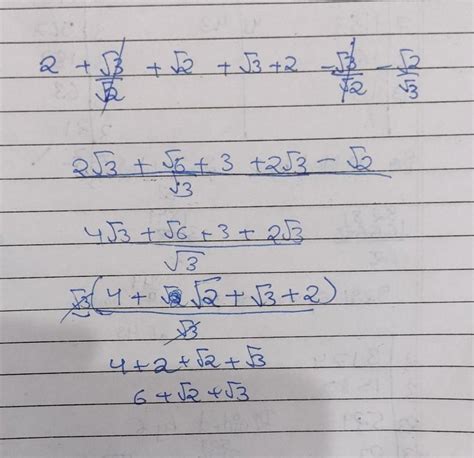 2 + √3/√2 + √2 + √3 + 2 - √3/√2 - √2/√3
2√3 + √6 + 3 + 2√3 - √2
√3
4√3 + √6 + 3 + 2√3
√3
√3(4 + √2 + √3 + 2)
√3
4 + 2 + √2 + √3
6 + √2 + √3